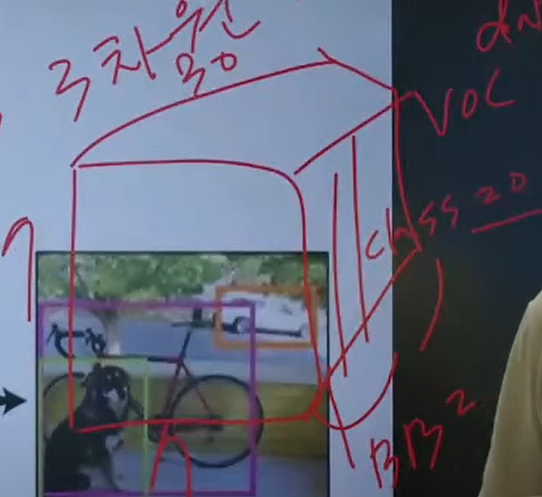 3차원
30
VOC
7
class 20
BB 2
7